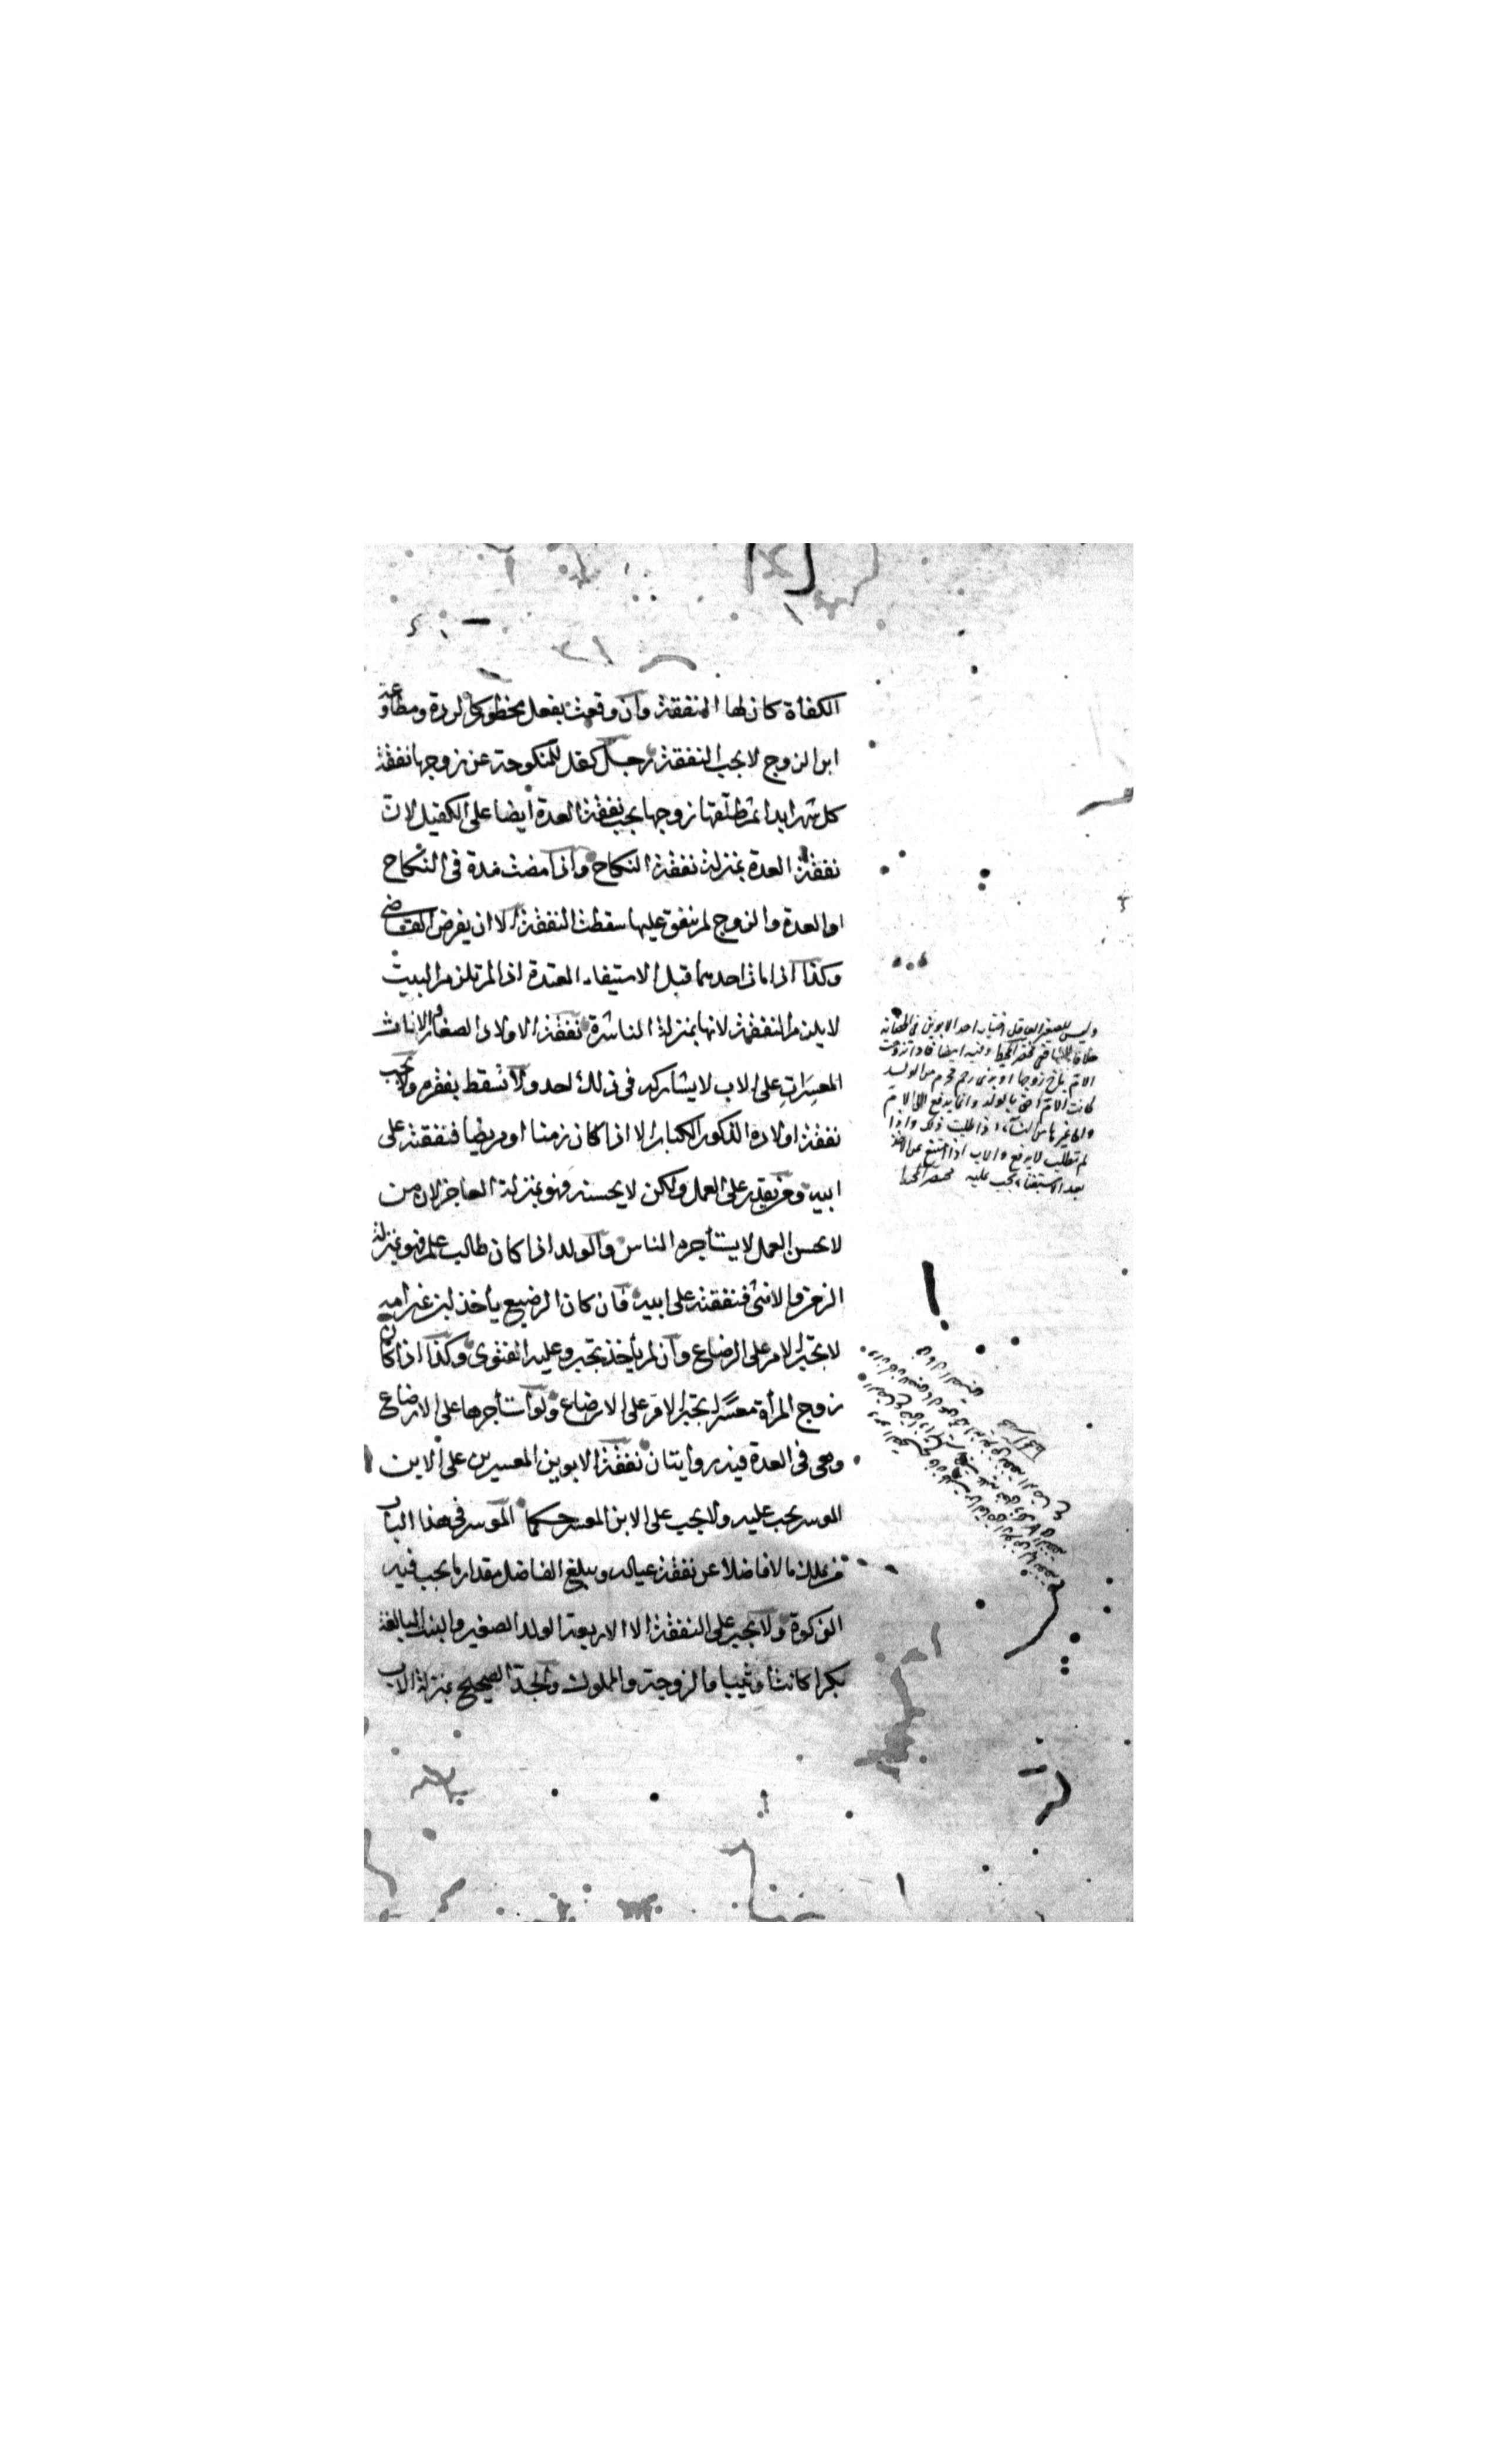 الكفأة كان لها النفقة وان وقعت بفعل محظور كالردة ومطاوعة
ابن الزوج لا يجب النفقة رجل كفل للمنكوحة عن زوجها نفقة
كل شهر ابدا ثم طلقها زوجها يجب نفقة العدة ايضا على الكفيل لان
نفقة العدة بمنزلة نفقة النكاح واذا مضت مدة فى النكاح
او العدة والزوج لم ينفق عليها سقطت النفقة الا ان يفرض القاضى
وكذا اذا مات احدهما قبل الاستيفاء المعتدة اذا لم تلزم البيت
لا يلزم النفقة لانها بمنزلة الناشزة نفقة الاولاد الصغار والاناث
المعسرات على الاب لا يشاركه فى ذلك احد ولا تسقط بفقره ولا يجب
نفقة اولاده الذكور الكبار الا اذا كان زمنا او مريضا فنفقته على
ابيه ومن يقدر على العمل ولكن لا يحسنه فهو بمنزلة العاجز لان من
لا يحسن العمل لا يستأجره الناس والولد اذا كان طالب علم فهو بمنزلة
الزمن والانثى فنفقته على ابيه فان كان الرضيع يأخذ لبن غير امه
لا تجبر الام على الرضاع وان لم يأخذ تجبر وعليه الفتوى وكذا اذا كان
زوج المرأة معسرا تجبر الام على الارضاع ولو استأجرها على الارضاع
وهى فى العدة فيه روايتان نفقة الابوين المعسرين على الابن
الموسر يجب عليه ولا يجب على الابن المعسر حكما الموسر فى هذا الباب
من يملك مالا فاضلا عن نفقة عياله ويبلغ الفاضل مقدار ما يجب فيه
الزكوة ولا يجبر على النفقة الا الاربعة الولد الصغير والبنت البالغة
بكرا كانت او ثيبا والزوجة والمملوك والجد الصحيح بمنزلة الاب
وليس للصغير العاقل اختيار احد الابوين فى الحضانة
خلافا للشافعى مختصر المحيط وفيه ايضا فاذا تزوجت
الام بآخر زوجا او بذى رحم محرم من الولد
كانت الام احق بالولد وانما يدفع الى الام
والى غيرها من النساء اذا طلبت ذلك واذا
لم تطلب لا يدفع والاب اذا امتنع عن الاخذ
بعد الاستغناء يجب عليه مختصر المحيط